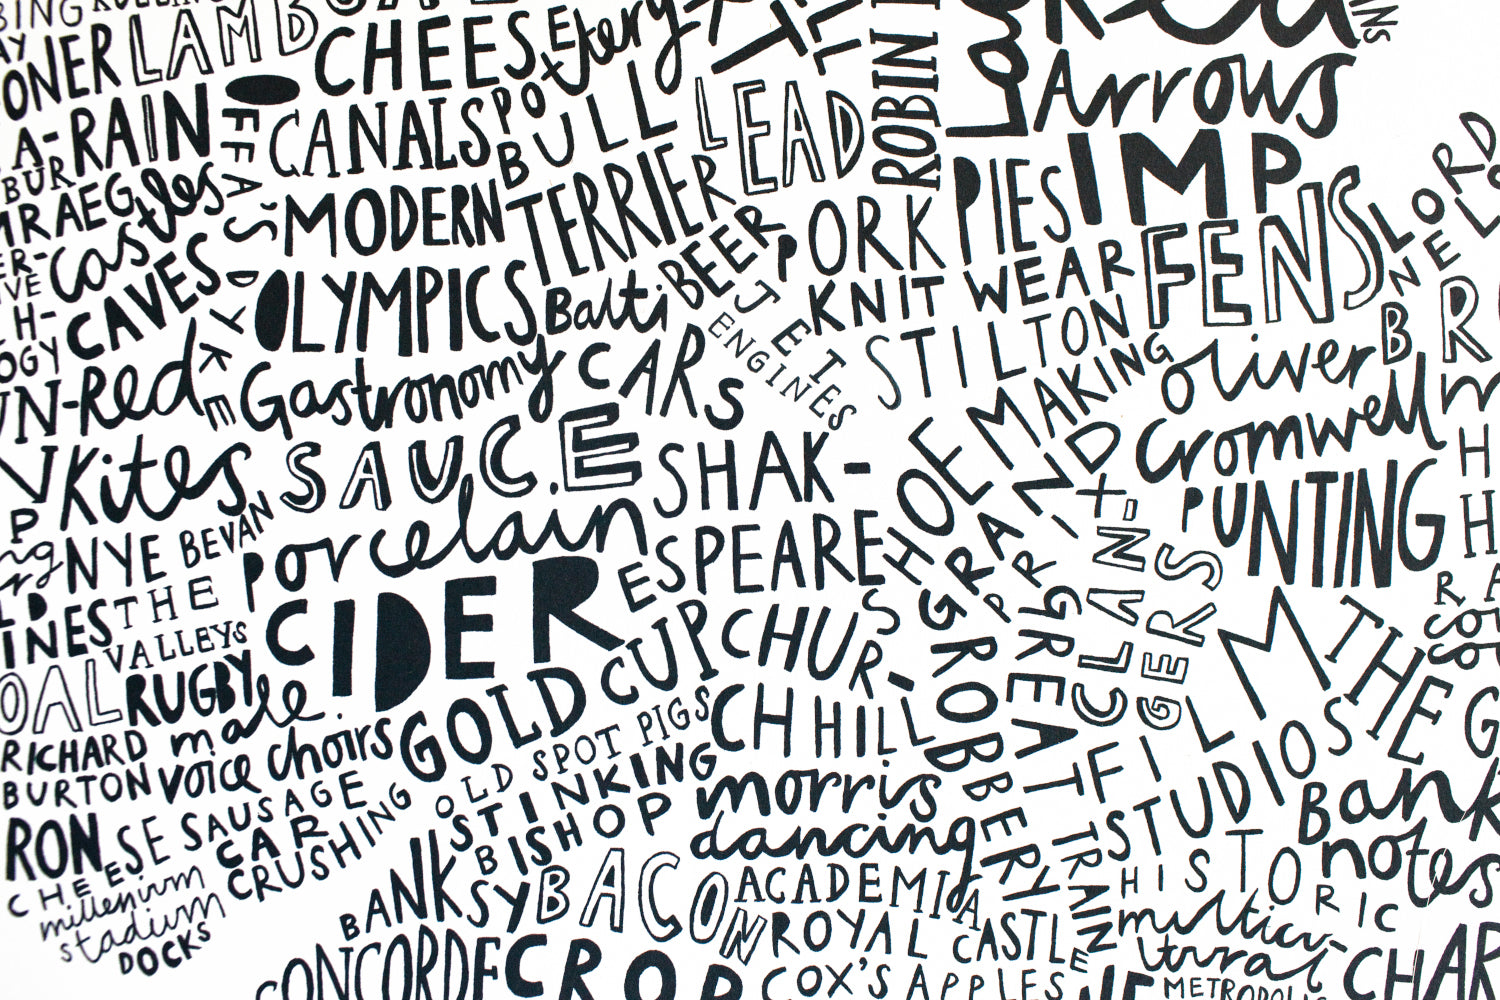 LAMB
CHEESE
Pottery
ROBIN
Red
Arrows
A-RAIN
OFFA'S DYKE
CANALS
BULL
TERRIER
LEAD
PIES
IMP
Castles
MODERN
OLYMPICS
BEER
PORK
KNIT WEAR
FENS
LORD
CAVES
Balti
JET
ENGINES
STILTON
Gastronomy
CARS
SHOE MAKING
Oliver
Cromwell
Kites
SAUCE
SHAK-
ESPEARE
GRAND
PRIX
PUNTING
NYE BEVAN
porcelain
THE
VALLEYS
CIDER
CHUR-
CHHILL
GREAT
TRAIN
ROBBERY
CLAN-
GERS
RUGBY
GOLD CUP
RICHARD
BURTON
male
voice choirs
OLD SPOT PIGS
STINKING
BISHOP
morris
dancing
FILM
STUDIOS
THE
Bank
notes
CHEESE
SAUSAGE
CAR
CRUSHING
millenium
stadium
DOCKS
BANKSY
BACON
ACADEMIA
ROYAL CASTLE
HISTORIC
multicu-
ltural
CONCORDE
COX'S APPLES